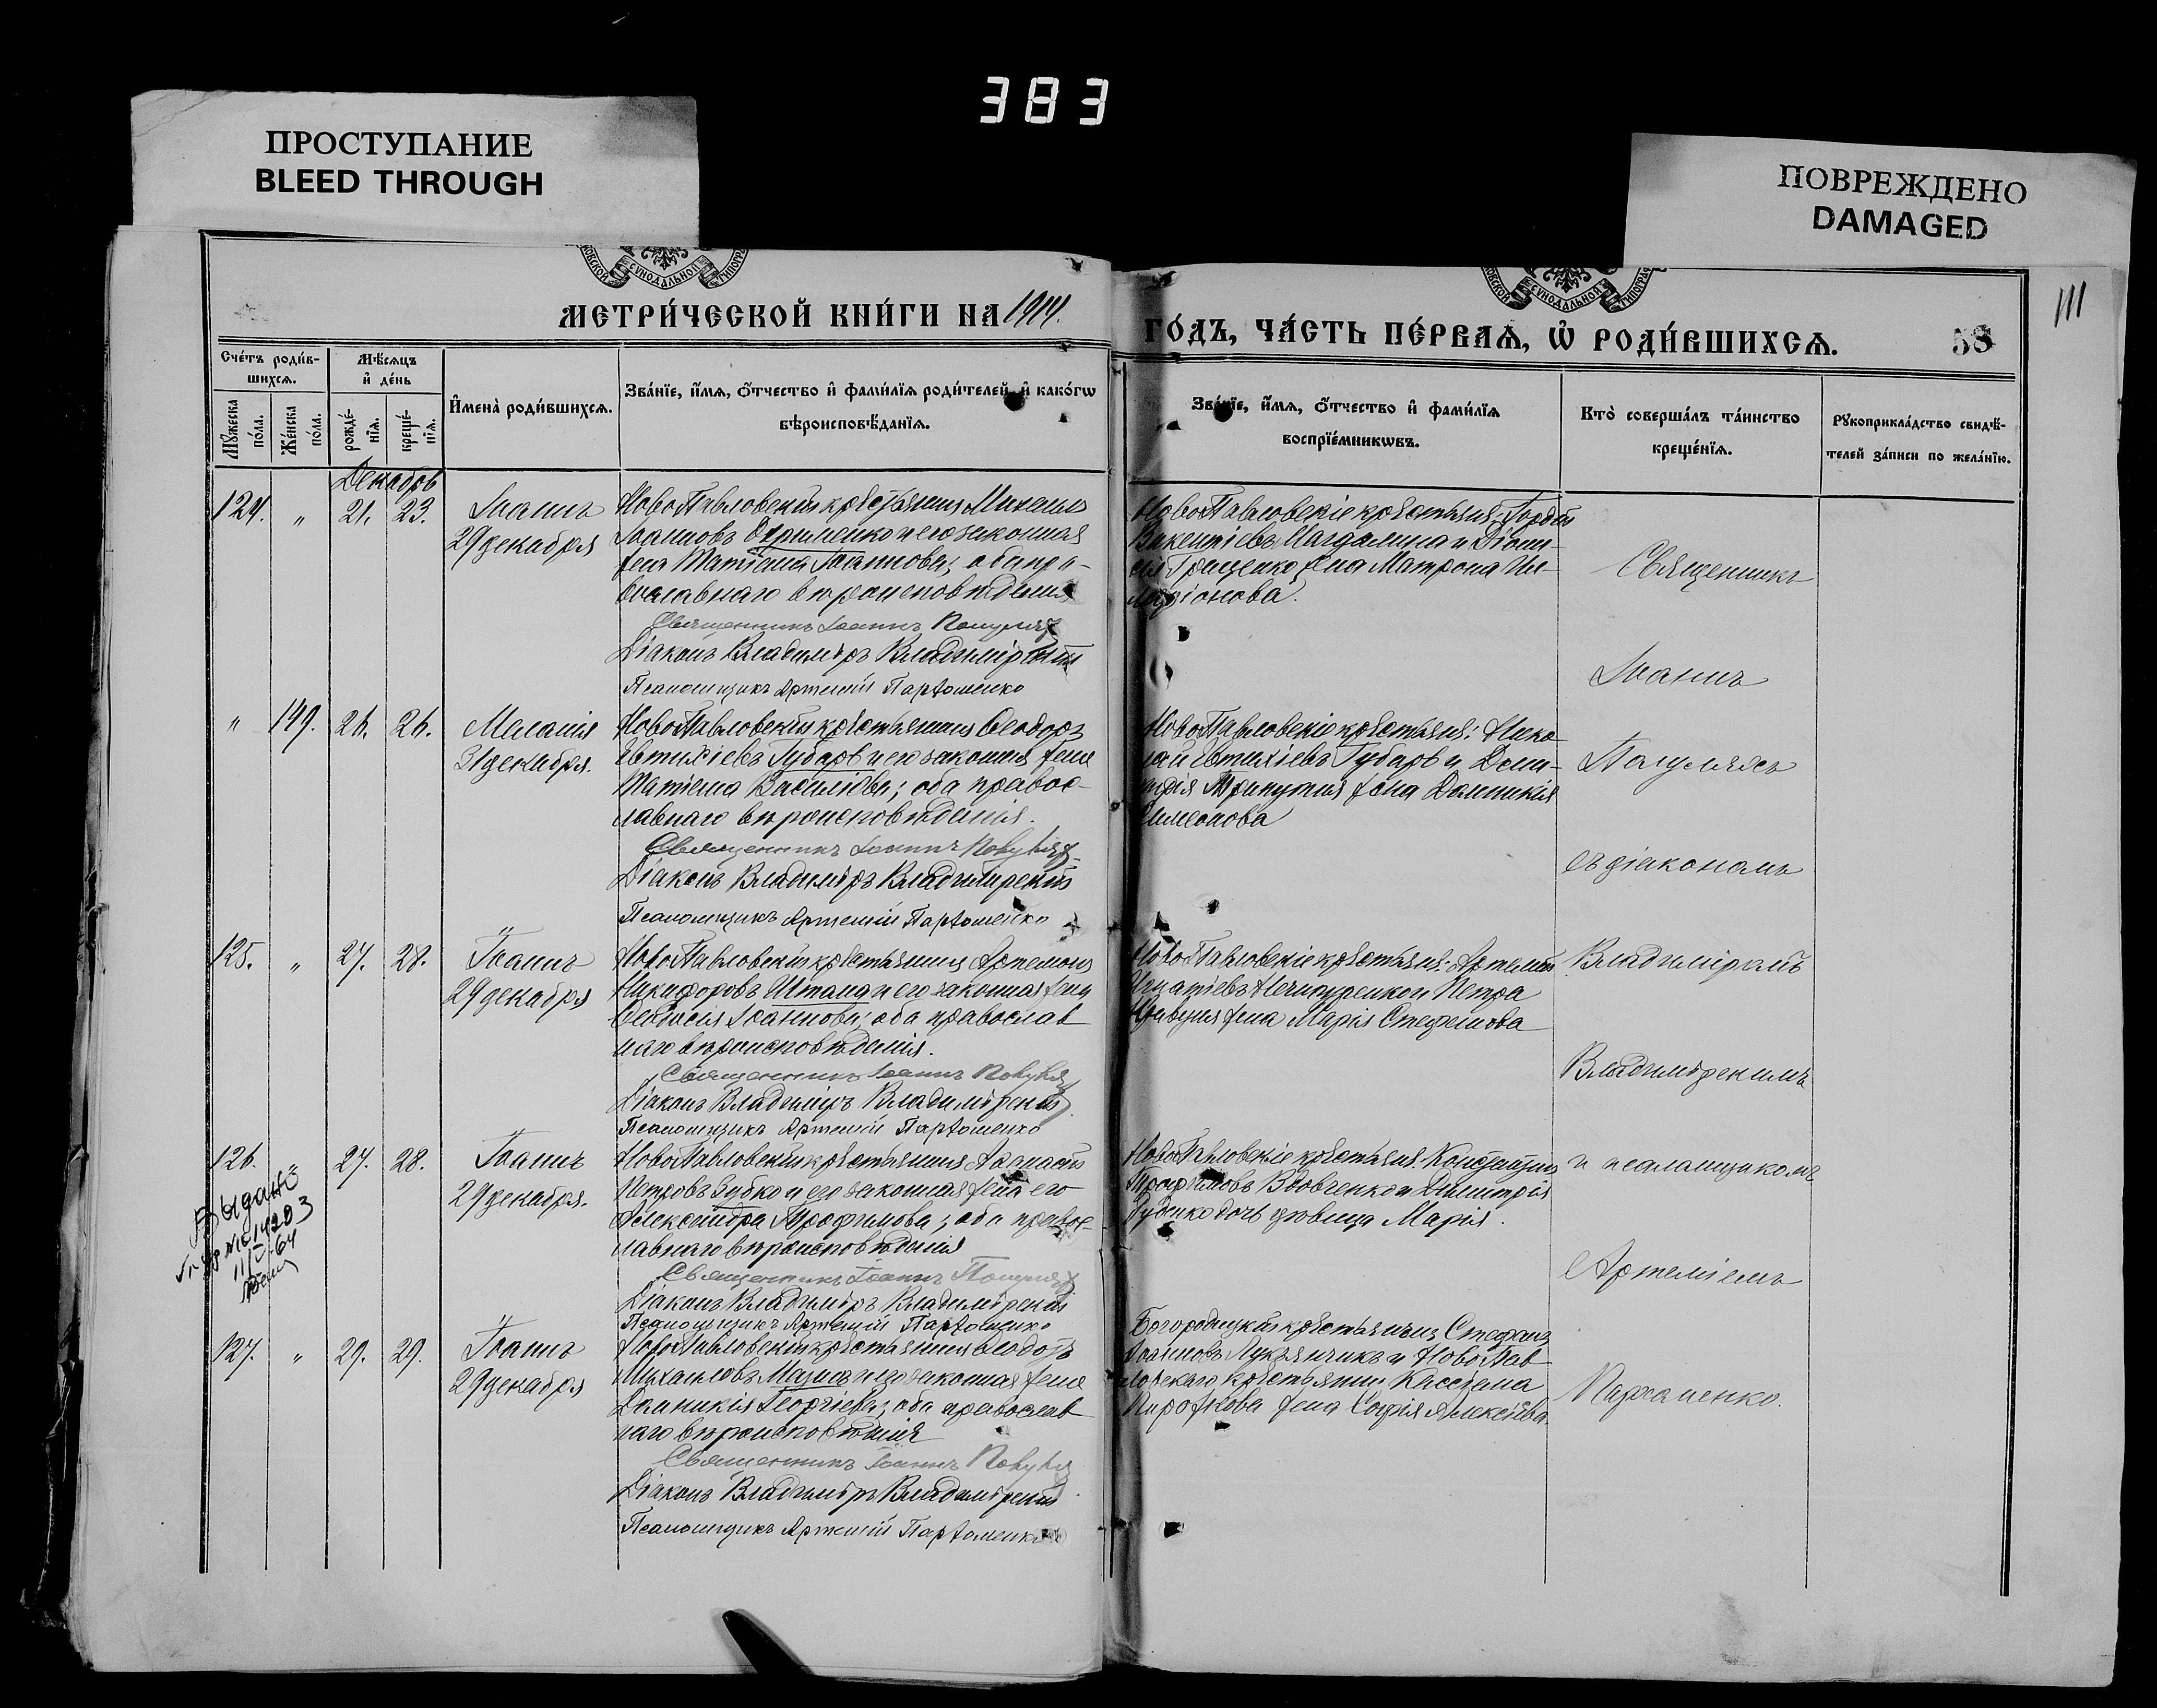 383
ПРОСТУПАНИЕ
BLEED THROUGH
ПОВРЕЖДЕНО
DAMAGED
СУНОДАЛЬНОЙ
СУНОДАЛЬНОЙ
111
МЕТРИ́ЧЕСКОЙ КНИ́ГИ НА 1914.
ГО́ДЪ, ЧА́СТЬ ПЕ́РВАѦ, Ѡ҆ РОДИ́ВШИХСѦ.
58
Сче́тъ роди́в-
шихсѧ.
Мꙋжеска
по́ла.
Же́нска
по́ла.
Мѣ́сѧцъ
и҆ де́нь
рожде́-
нїѧ.
креще́-
нїѧ.
И҆мена̀ роди́вшихсѧ.
Зва́нїе, и҆́мѧ, ѻ҆́тчество и҆ фами́лїѧ роди́телей, и҆ како́гѡ
вѣроисповѣ́данїѧ.
Зва́нїе, и҆́мѧ, ѻ҆́тчество и҆ фами́лїѧ
воспрїе́мникѡвъ.
Кто̀ соверша́лъ та́инство
креще́нїѧ.
Рꙋкоприкла́дство свидѣ́-
телей за́писи по жела́нїю.
Декабрь
124. " 21. 23.
Іоаннъ
29 декабря
НовоПавловскій крестьянинъ Михаилъ
Іоанновъ и его законная
жена Татіана Іоаннова; оба пра-
вославнаго вѣроисповѣданія
Священникъ Іоаннъ
Діаконъ Владиміръ Владимірскій
Псаломщикъ Артемій Пархоменко
НовоПавловскіе крестьяне: Гордѣй
Викентіевъ и Діони-
сія Гриценко жена Матрона Ил-
ларіонова.
Священникъ
Іоаннъ
" 149. 26. 26.
Меланія
31 декабря.
НовоПавловскій крестьянинъ Ѳеодоръ
Евтихіевъ Губарь и его законная жена
Татіана Васильева; оба правос-
лавнаго вѣроисповѣданія.
Священникъ Іоаннъ
Діаконъ Владиміръ Владимірскій
Псаломщикъ Артемій Пархоменко
НовоПавловскіе крестьяне: Нико-
лай Евтихіевъ Губарь и
жена Домникія
Симеонова
съ діакономъ
125. " 27. 28.
Іоаннъ
29 декабря
НовоПавловскій крестьянинъ Артемонъ
Никифоровъ и его законная жена
Ѳеодосія Іоаннова; оба православ
наго вѣроисповѣданія.
Священникъ Іоаннъ
Діаконъ Владиміръ Владимірскій
Псаломщикъ Артемій Пархоменко
НовоПавловскіе крестьяне: Артемій
Игнатіевъ и Петра
жена Марія Стефанова
Владиміромъ
Владимірскимъ
126. " 27. 28.
Іоаннъ
29 декабря.
Выдано
НовоПавловскій крестьянинъ Аѳанасій
Петровъ Зубко и его законная жена его
Александра Трофимова; оба правос-
лавнаго вѣроисповѣданія
Священникъ Іоаннъ
Діаконъ Владиміръ Владимірскій
Псаломщикъ Артемій Пархоменко
НовоПавловскіе крестьяне: Константинъ
Трофимовъ Вдовченко и Димитрія
дочь дѣвица Марія.
и псаломщикомъ
Артеміемъ
127. " 29. 29.
Іоаннъ
29 декабря
НовоПавловскій крестьянинъ Ѳеодоръ
Михаиловъ и его законная жена
Домникія Георгіева; оба православ
наго вѣроисповѣданія
Священникъ Іоаннъ
Діаконъ Владиміръ Владимірскій
Псаломщикъ Артемій Пархоменко
Богородицкій крестьянинъ Стефанъ
Іоанновъ Лукьянчикъ и НовоПав-
ловскаго крестьянина
жена Софія Алексѣева.
Пархоменко.